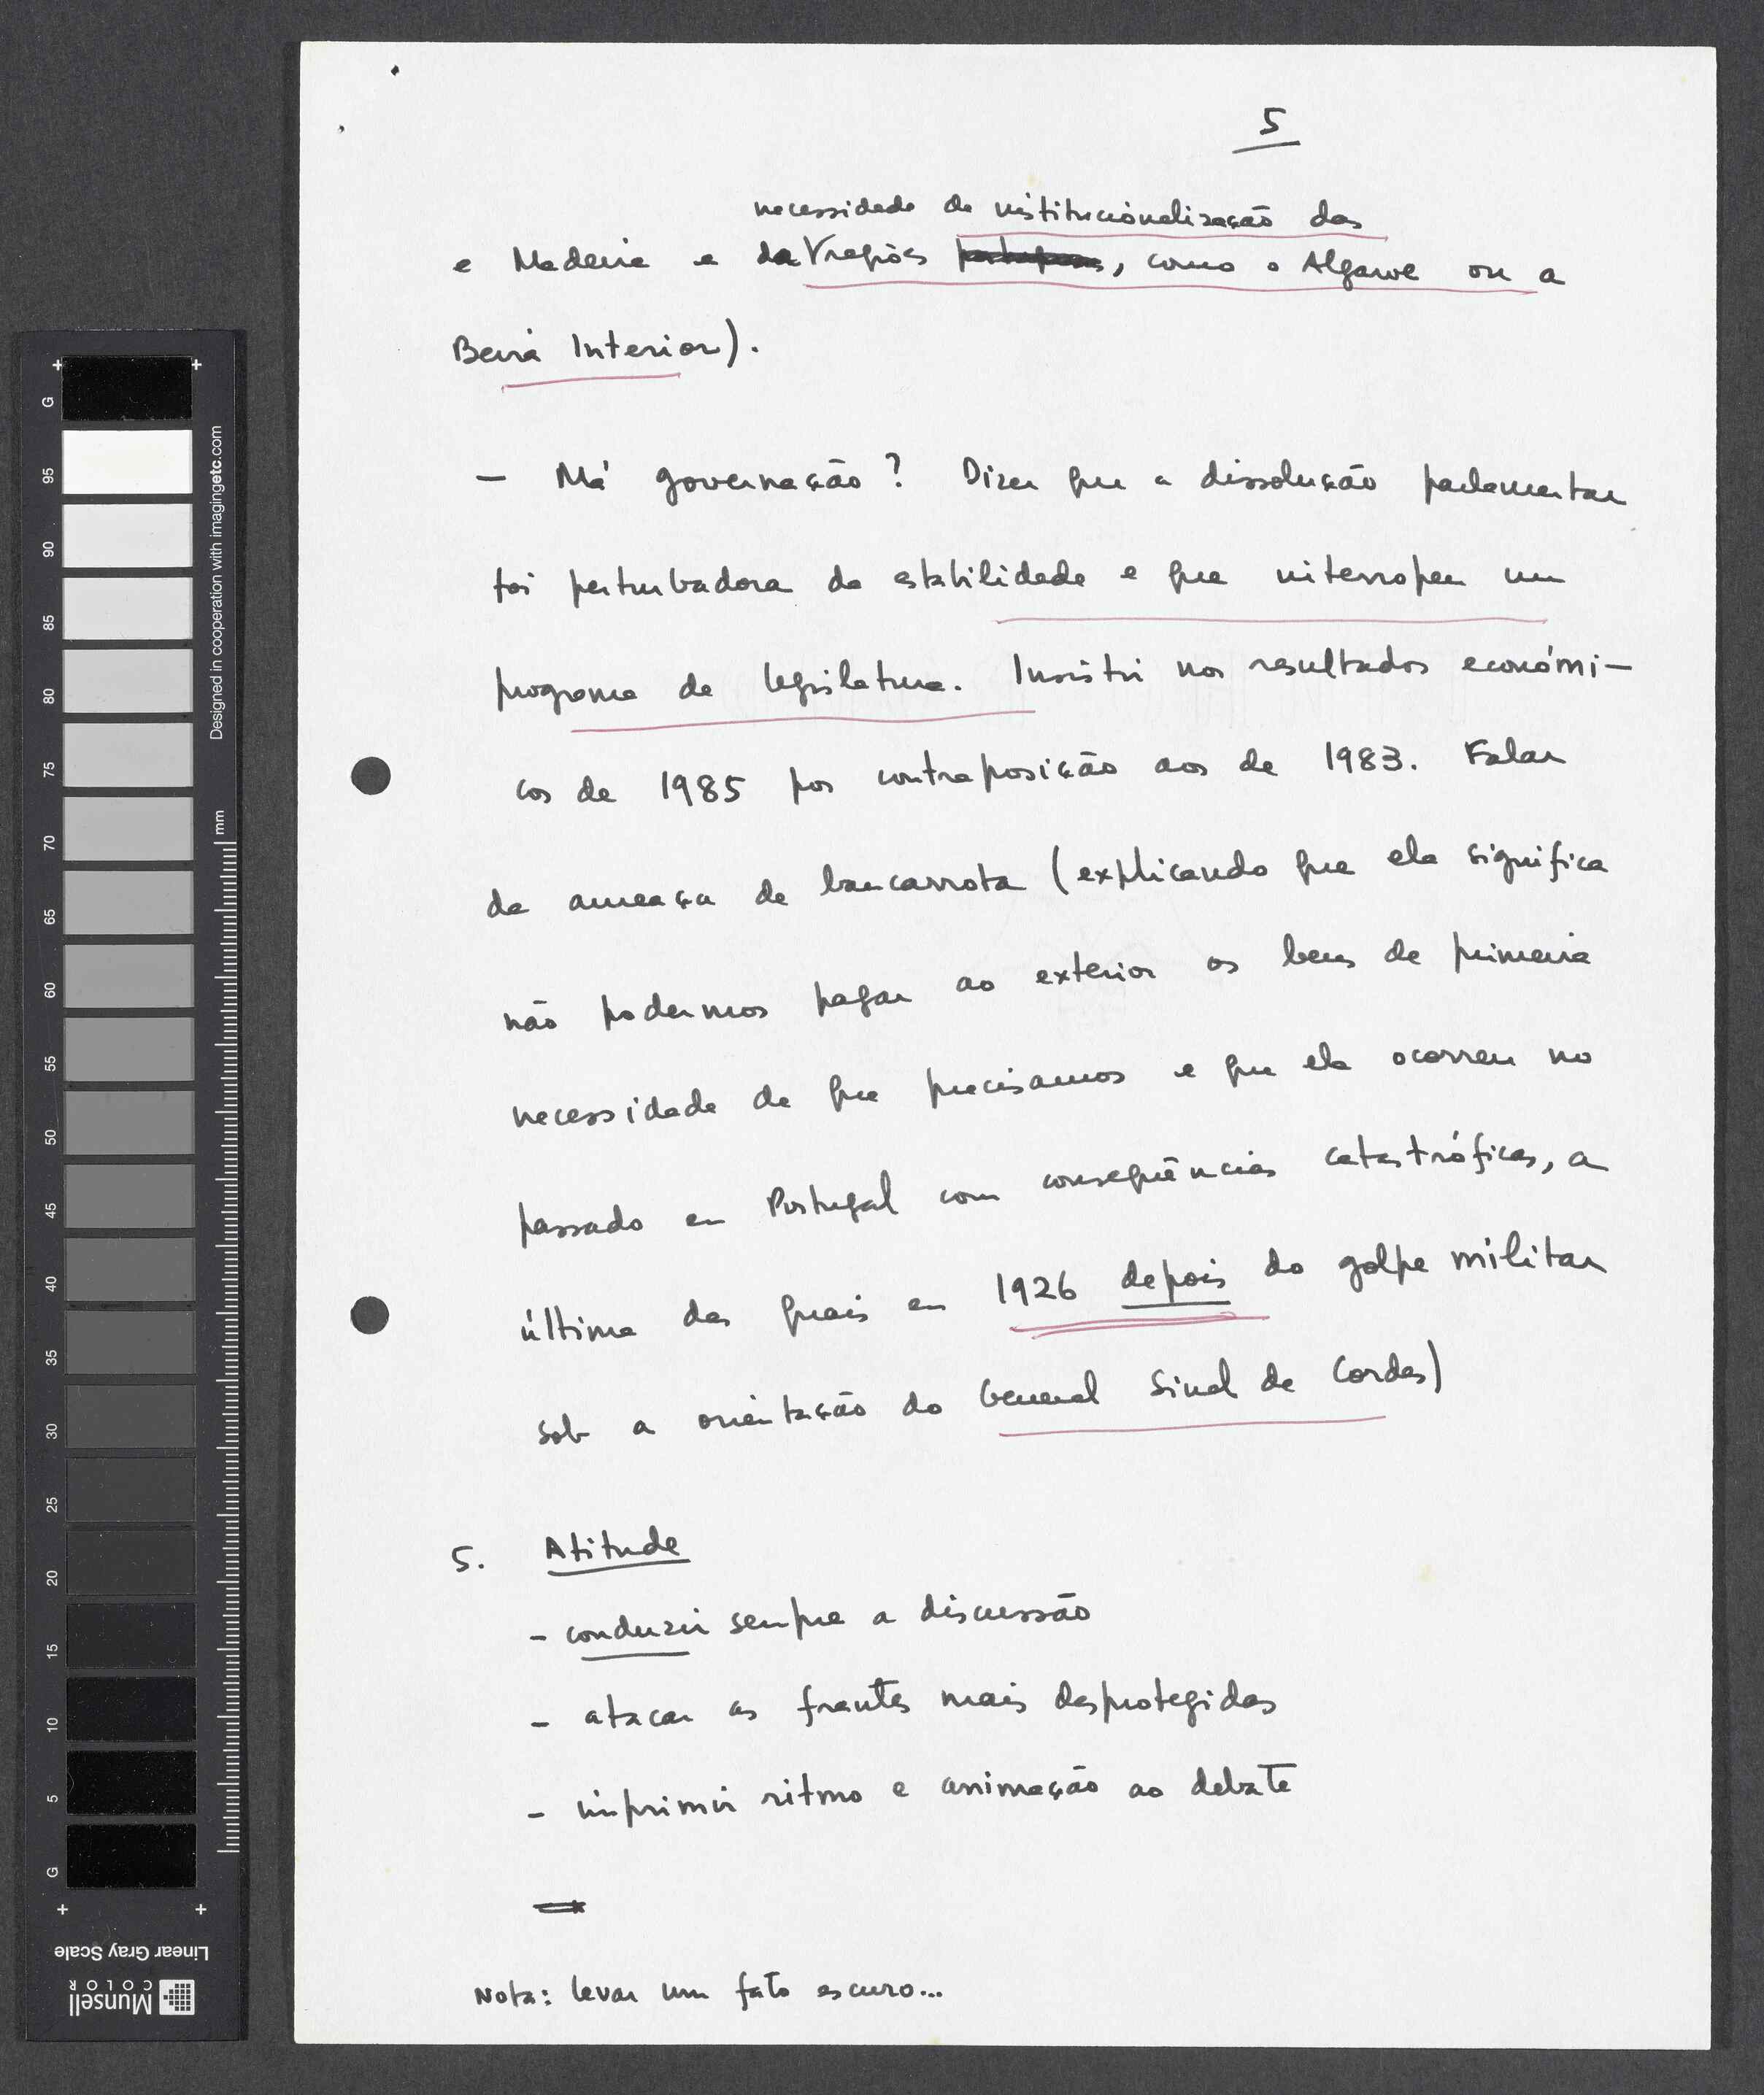 5
necessidade de institucionalização das
e Madeira e da regiões, como o Algarve ou a
Beira Interior).
- Má governação? Dizer que a dissolução parlamentar
foi perturbadora da estabilidade e que interrompeu um
programa de legislatura. Insistir nos resultados económi-
cos de 1985 por contraposição aos de 1983. Falar
da ameaça de bancarrota (explicando que ela significa
não podermos pagar ao exterior os bens de primeira
necessidade de que precisamos e que ela ocorreu no
passado em Portugal com consequências catastróficas, a
última das quais em 1926 depois do golpe militar
sob a orientação do General Sinel de Cordes)
5. Atitude
- conduzir sempre a discussão
- atacar as frentes mais desprotegidas
- imprimir ritmo e animação ao debate
Nota: levar um fato escuro...
G 95 90 85 80 75 70 65 60 55 50 45 40 35 30 25 20 15 10 5 G
Designed in cooperation with imagingetc.com
mm
Linear Gray Scale
Munsell
COLOR